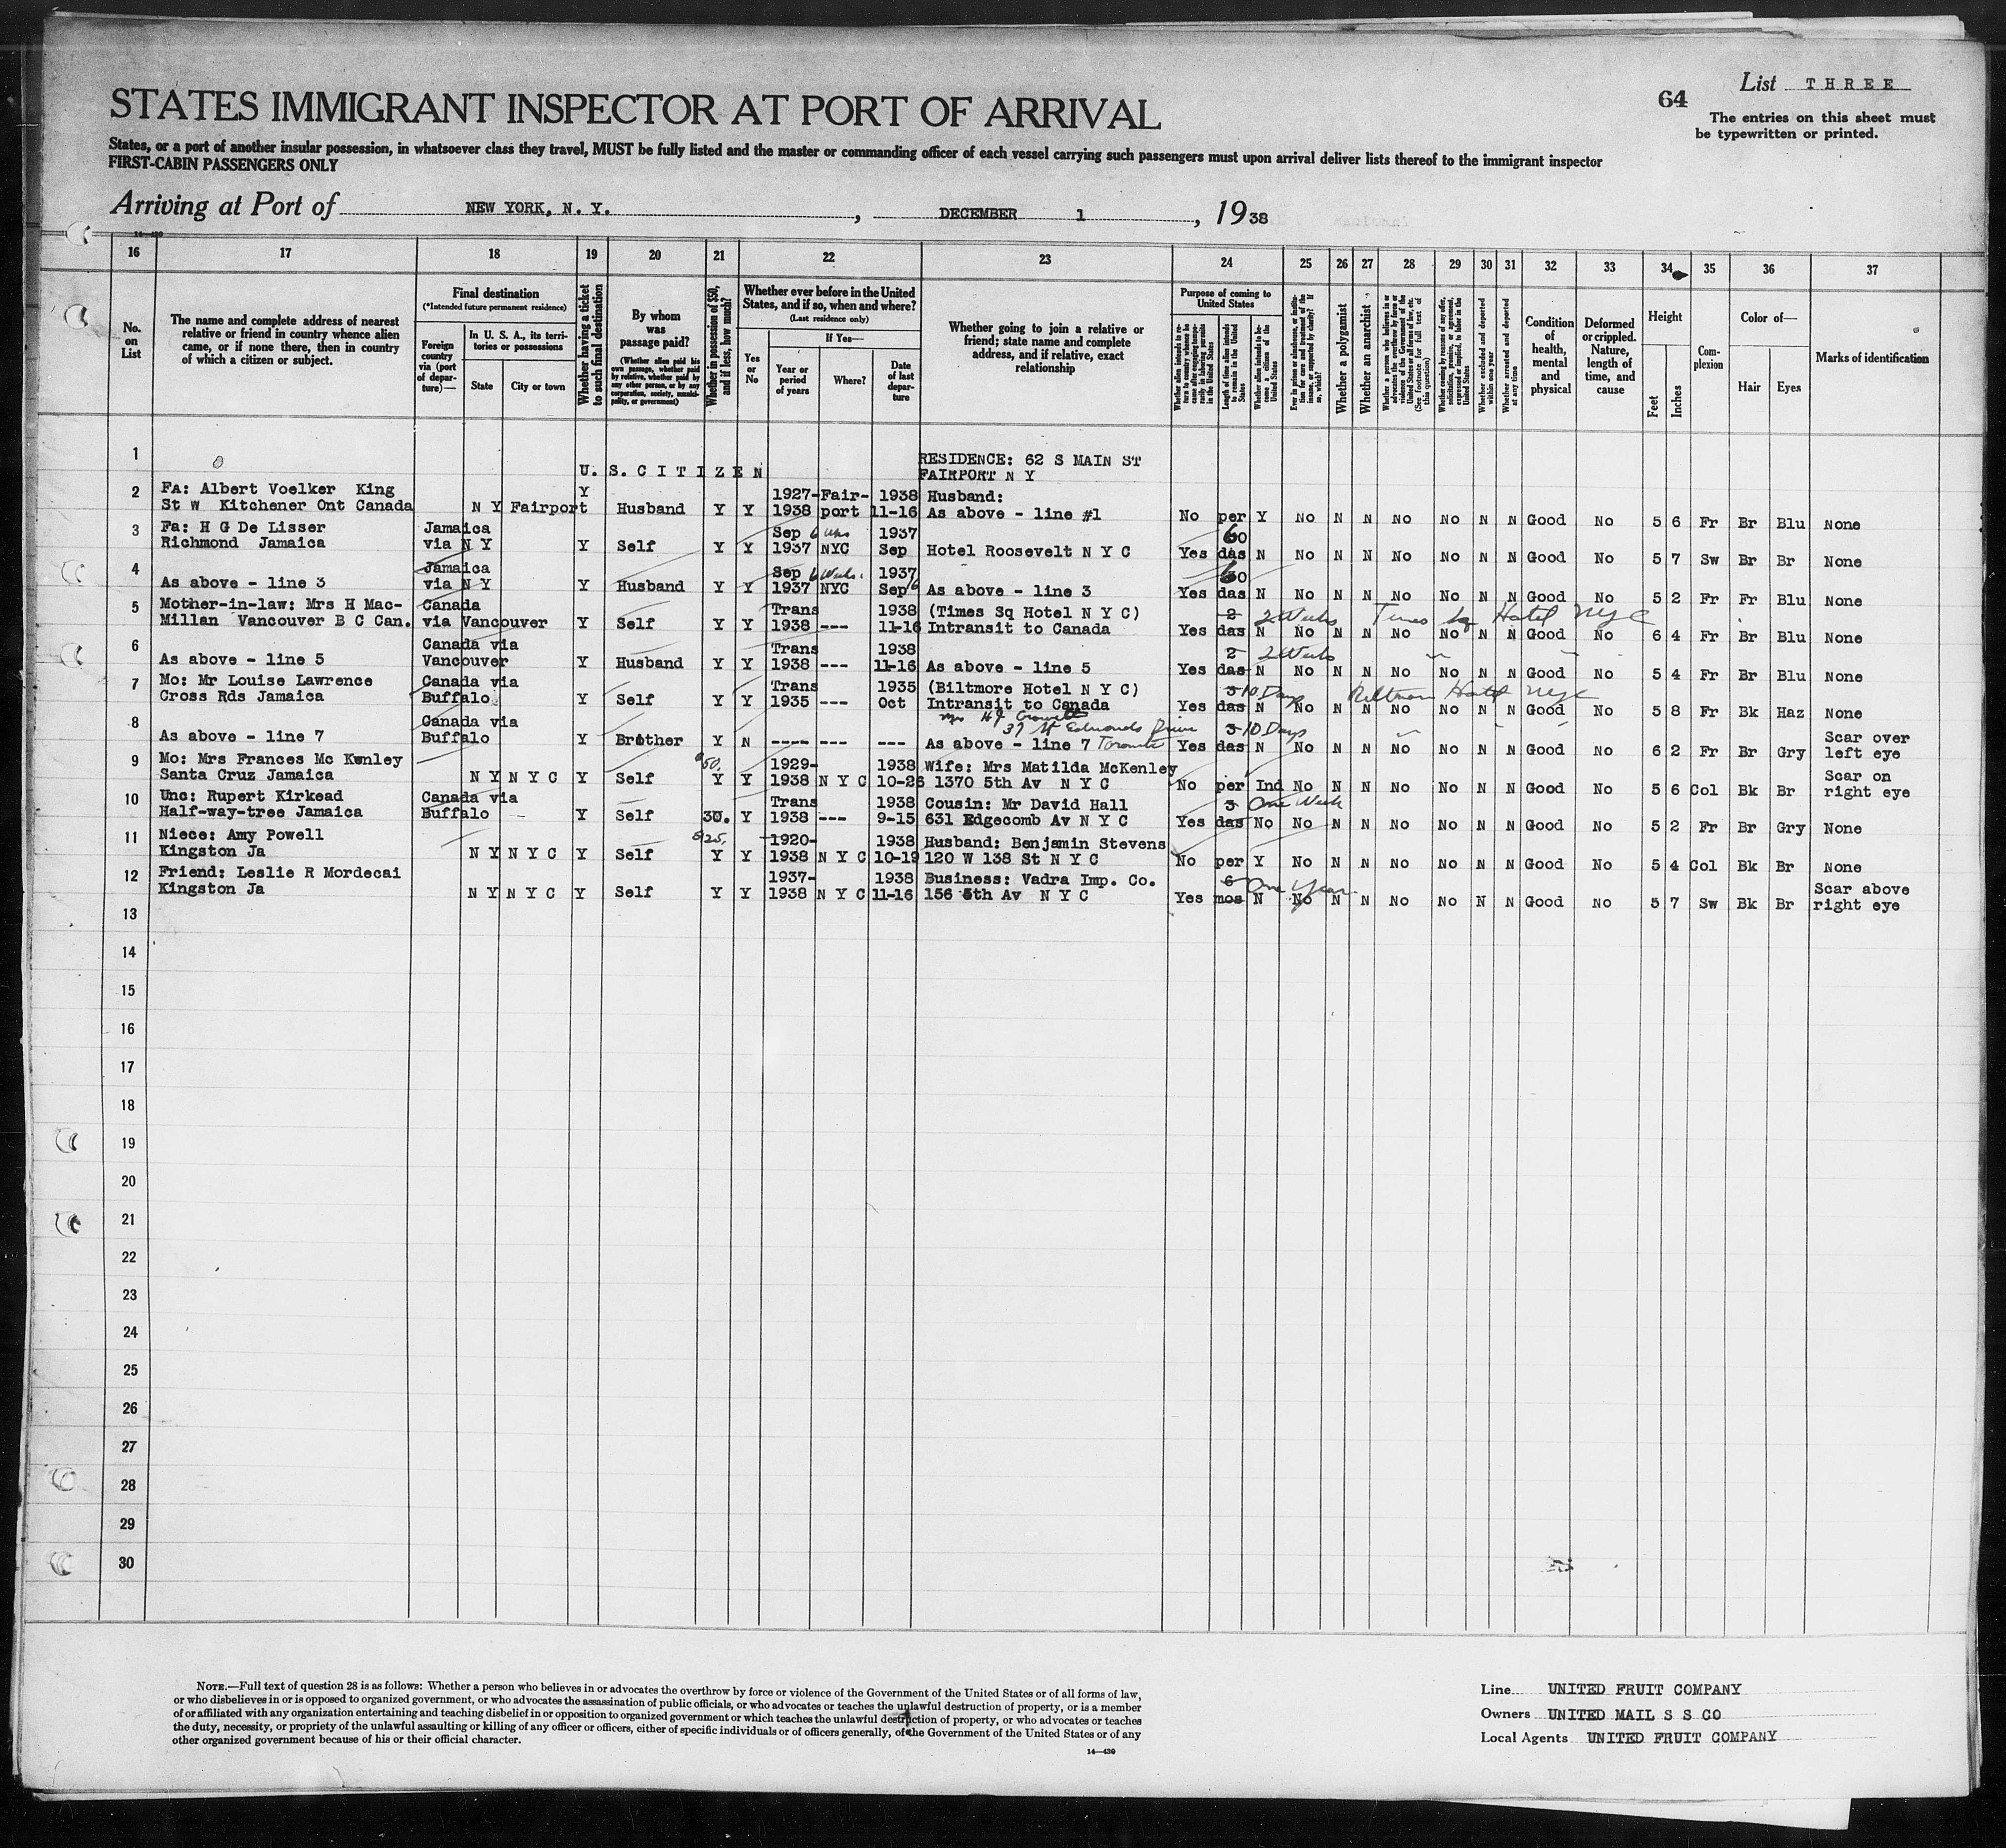 List THREE
64
The entries on this sheet must
be typewritten or printed.
STATES IMMIGRANT INSPECTOR AT PORT OF ARRIVAL
States, or a port of another insular possession, in whatsoever class they travel, MUST be fully listed and the master or commanding officer of each vessel carrying such passengers must upon arrival deliver lists thereof to the immigrant inspector
FIRST-CABIN PASSENGERS ONLY
Arriving at Port of NEW YORK, N. Y. , DECEMBER 1 , 1938
14-430
16 17 18 19 20 21 22 23 24 25 26 27 28 29 30 31 32 33 34 35 36 37
No. on List
The name and complete address of nearest relative or friend in country whence alien came, or if none there, then in country of which a citizen or subject.
Final destination
(*Intended future permanent residence)
Foreign country via (port of departure)—
In U. S. A., its territories or possessions
State
City or town
Whether having a ticket to such final destination
By whom was passage paid?
(Whether alien paid his own passage, whether paid by relative, whether paid by any other person, or by any corporation, society, municipality, or government)
Whether in possession of $50, and if less, how much?
Whether ever before in the United States, and if so, when and where?
(Last residence only)
Yes or No
If Yes—
Year or period of years
Where?
Date of last departure
Whether going to join a relative or friend; state name and complete address, and if relative, exact relationship
Purpose of coming to United States
Length of time alien intends to remain in the United States
Whether alien intends to become a citizen of the United States
Whether a polygamist
Whether an anarchist
Whether excluded and deported within one year
Whether arrested and deported at any time
Condition of health, mental and physical
Deformed or crippled. Nature, length of time, and cause
Height
Feet
Inches
Complexion
Color of—
Hair
Eyes
Marks of identification
1 U. S. C I T I Z E N RESIDENCE: 62 S MAIN ST
FAIRPORT N Y
2 FA: Albert Voelker King Y 1927-Fair- 1938 Husband:
St W Kitchener Ont Canada N Y Fairport Husband Y Y 1938 port 11-16 As above - line #1 No per Y No N N No No N N Good No 5 6 Fr Br Blu None
3 Fa: H G De Lisser Jamaica Sep 6 wks 1937 60
Richmond Jamaica via N Y Y Self Y Y 1937 NYC Sep Hotel Roosevelt N Y C Yes das N No N N No No N N Good No 5 7 Sw Br Br None
4 Jamaica Sep 6 Weeks. 1937 60
As above - line 3 via N Y Y Husband Y Y 1937 NYC Sep As above - line 3 Yes das N No N N No No N N Good No 5 2 Fr Fr Blu None
5 Mother-in-law: Mrs H Mac- Canada Trans 1938 (Times Sq Hotel N Y C) 2 2 Weeks Times Sq Hotel NYC
Millan Vancouver B C Can. via Vancouver Y Self Y Y 1938 --- 11-16 Intransit to Canada Yes das N No N N No No N N Good No 6 4 Fr Br Blu None
6 Canada via Trans 1938 2 2 Weeks
As above - line 5 Vancouver Y Husband Y Y 1938 --- 11-16 As above - line 5 Yes das N No N N No No N N Good No 5 4 Fr Br Blu None
7 Mo: Mr Louise Lawrence Canada via Trans 1935 (Biltmore Hotel N Y C) 3 10 Days Biltmore Hotel NYC
Cross Rds Jamaica Buffalo Y Self Y Y 1935 --- Oct Intransit to Canada Yes das N No N N No No N N Good No 5 8 Fr Bk Haz None
37 St Edmonds Drive
8 Canada via 3 10 Days Scar over
As above - line 7 Buffalo Y Brother Y N ---- --- --- As above - line 7 Toronto Yes das N No N N No No N N Good No 6 2 Fr Br Gry left eye
9 Mo: Mrs Frances Mc Kenley $50. 1929- 1938 Wife: Mrs Matilda McKenley Scar on
Santa Cruz Jamaica N Y N Y C Y Self Y Y 1938 N Y C 10-26 1370 5th Av N Y C No per Ind No N N No No N N Good No 5 6 Col Bk Br right eye
10 Unc: Rupert Kirkead Canada via Trans 1938 Cousin: Mr David Hall 3 One Week
Half-way-tree Jamaica Buffalo Y Self 30. Y 1938 --- 9-15 631 Edgecomb Av N Y C Yes das No No N N No No N N Good No 5 2 Fr Br Gry None
11 Niece: Amy Powell $25. 1920- 1938 Husband: Benjamin Stevens
Kingston Ja N Y N Y C Y Self Y Y 1938 N Y C 10-19 120 W 138 St N Y C No per Y No N N No No N N Good No 5 4 Col Bk Br None
12 Friend: Leslie R Mordecai 1937- 1938 Business: Vadra Imp. Co. 6 One Year Scar above
Kingston Ja N Y N Y C Y Self Y Y 1938 N Y C 11-16 156 5th Av N Y C Yes mos N No N N No No N N Good No 5 7 Sw Bk Br right eye
13
14
15
16
17
18
19
20
21
22
23
24
25
26
27
28
29
30
NOTE.—Full text of question 28 is as follows: Whether a person who believes in or advocates the overthrow by force or violence of the Government of the United States or of all forms of law,
or who disbelieves in or is opposed to organized government, or who advocates the assassination of public officials, or who advocates or teaches the unlawful destruction of property, or is a member
of or affiliated with any organization entertaining and teaching disbelief in or opposition to organized government or which teaches the unlawful destruction of property, or who advocates or teaches
the duty, necessity, or propriety of the unlawful assaulting or killing of any officer or officers, either of specific individuals or of officers generally, of the Government of the United States or of any
other organized government because of his or their official character.
14—430
Line UNITED FRUIT COMPANY
Owners UNITED MAIL S S CO
Local Agents UNITED FRUIT COMPANY